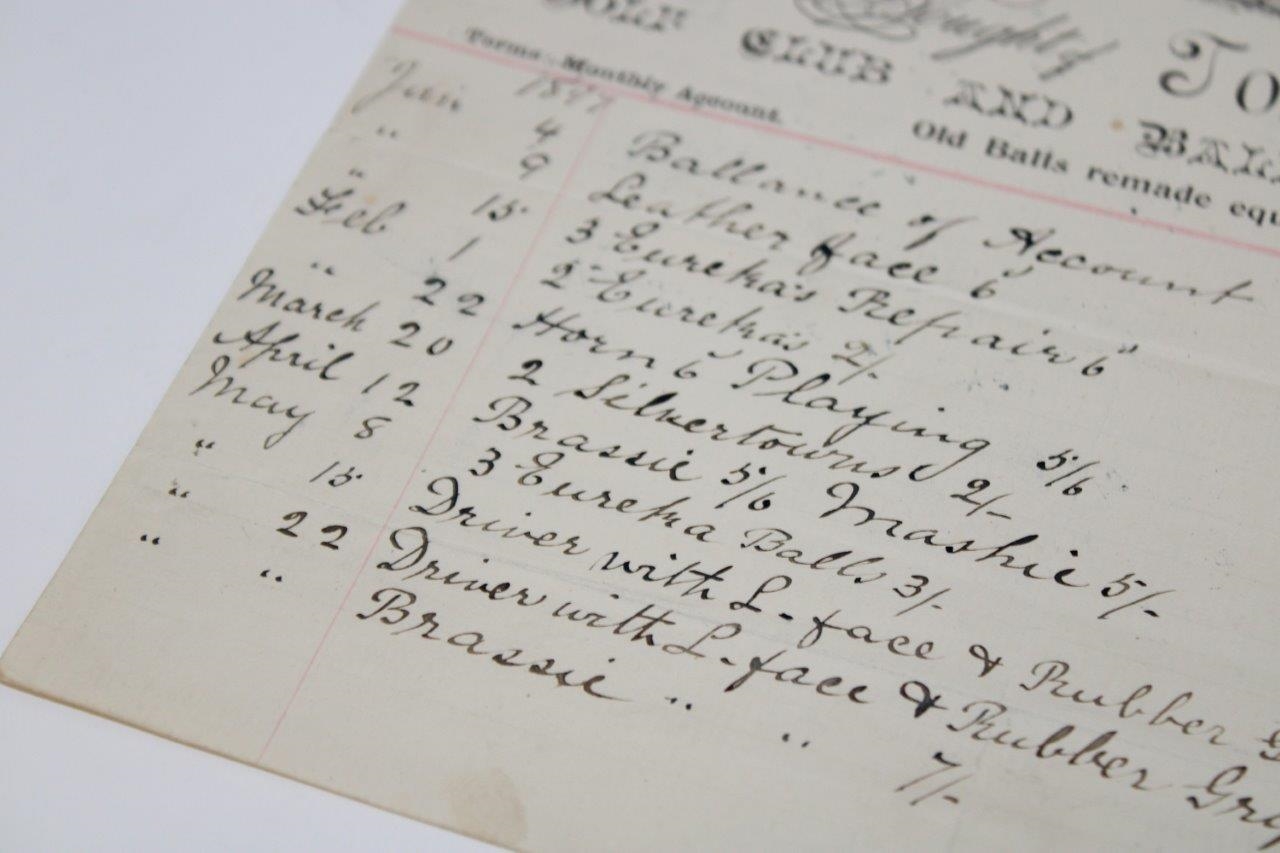 Bought of To
GOLF CLUB AND BALL
Terms:- Monthly Account.
Old Balls remade equ
Jan 4 Ballance of Account
" 9 Leather face 6
" 15 3 Eureka's Repair 6"
Feb 1 2 Eureka's 2/-
" 22 Horn 6 Playing 5/6
March 20 2 Silvertowns 2/-
April 12 Brassie 5/6 Mashie 5/-
May 8 3 Eureka Balls 3/-
" 15 Driver with L-face & Rubber G
" 22 Driver with L-face & Rubber Grip
" " Brassie " " 7/-